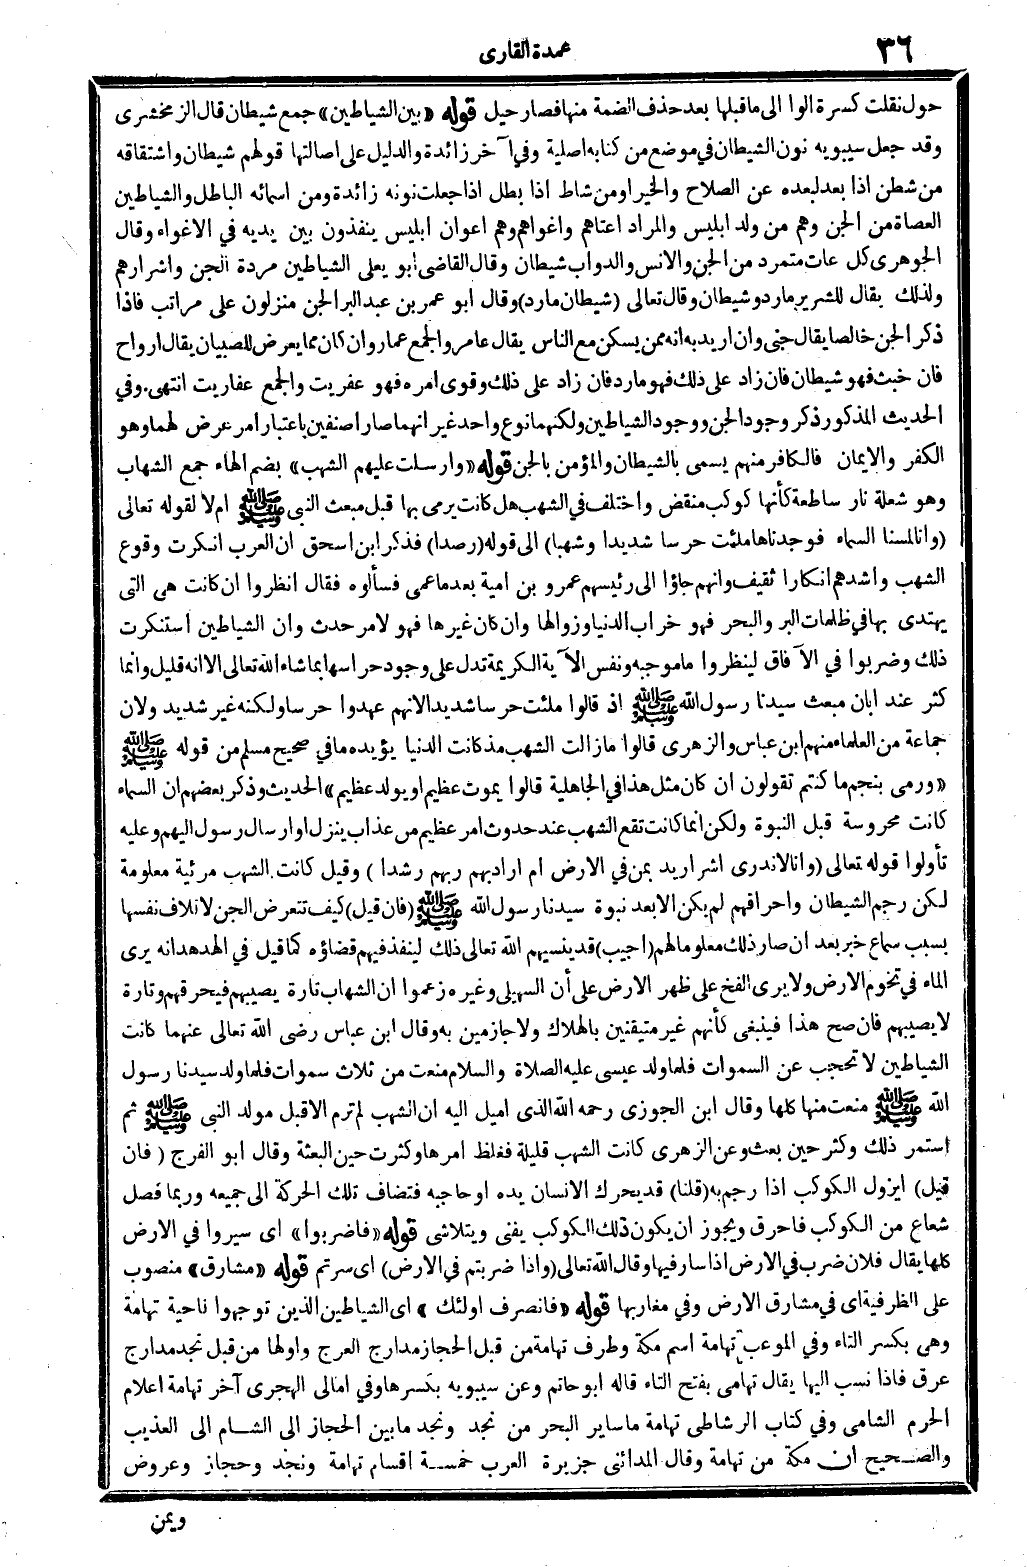 ٣٦
عمدة القارى
حول نقلت كسرة الوا الى ما قبلها بعد حذف الضمة منها فصار حيل قوله «بين الشياطين» جمع شيطان قال الزمخشرى
وقد جعل سيبويه نون الشيطان في موضع من كتابه اصلية وفي آخر زائدة والدليل على اصالتها قولهم شيطان واشتقاقه
من شطن اذا بعد لبعده عن الصلاح والخير او من شاط اذا بطل اذا جعلت نونه زائدة ومن اسمائه الباطل والشياطين
العصاة من الجن وهم من ولد ابليس والمراد اعتاهم واغواهم وهم اعوان ابليس ينفذون بين يديه في الاغواء وقال
الجوهرى كل عات متمرد من الجن والانس والدواب شيطان وقال القاضى أبو يعلى الشياطين مردة الجن واشرارهم
ولذلك يقال للشرير مارد وشيطان وقال تعالى (شيطان مارد) وقال ابو عمر بن عبد البر الجن منزلون على مراتب فاذا
ذكر الجن خالصا يقال جنى وان اريد به انه ممن يسكن مع الناس يقال عامر والجمع عمار وان كان مما يعرض للصبيان يقال ارواح
فان خبث فهو شيطان فان زاد على ذلك فهو مارد فان زاد على ذلك وقوى امره فهو عفريت والجمع عفاريت انتهى. وفي
الحديث المذكور ذكر وجود الجن ووجود الشياطين ولكنهما نوع واحد غير انهما صارا صنفين باعتبار امر عرض لهما وهو
الكفر والايمان فالكافر منهم يسمى بالشيطان والمؤمن بالجن قوله «وارسلت عليهم الشهب» بضم الهاء جمع الشهاب
وهو شعلة نار ساطعة كأنها كوكب منقض واختلف في الشهب هل كانت يرمى بها قبل مبعث النبى ﷺ ام لا لقوله تعالى
(وانا لمسنا السماء فوجدناها ملئت حرسا شديدا وشهبا) الى قوله (رصدا) فذكر ابن اسحق ان العرب انكرت وقوع
الشهب واشدهم انكارا ثقيف وانهم جاؤا الى رئيسهم عمرو بن امية بعد ما عمى فسألوه فقال انظروا ان كانت هى التى
يهتدى بها في ظلمات البر والبحر فهو خراب الدنيا وزوالها وان كان غيرها فهو لامر حدث وان الشياطين استنكرت
ذلك وضربوا في الآفاق لينظروا ما موجبه ونفس الآية الكريمة تدل على وجود حراسها بما شاء الله تعالى الا انه قليل وانما
كثر عند ابان مبعث سيدنا رسول الله ﷺ اذ قالوا ملئت حرسا شديدا لانهم عهدوا حرسا ولكنه غير شديد ولان
جماعة من العلماء منهم ابن عباس والزهرى قالوا ما زالت الشهب مذ كانت الدنيا يؤيده ما في صحيح مسلم من قوله ﷺ
«ورمى بنجم ما كنتم تقولون ان كان مثل هذا في الجاهلية قالوا يموت عظيم او يولد عظيم» الحديث وذكر بعضهم ان السماء
كانت محروسة قبل النبوة ولكن انما كانت تقع الشهب عند حدوث امر عظيم من عذاب ينزل او ارسال رسول اليهم وعليه
تأولوا قوله تعالى (وانا لاندرى اشر اريد بمن في الارض ام اراد بهم ربهم رشدا) وقيل كانت الشهب مرئية معلومة
لكن رجم الشيطان واحراقهم لم يكن الا بعد نبوة سيدنا رسول الله ﷺ (فان قيل) كيف تتعرض الجن لاتلاف نفسها
بسبب سماع خبر بعد ان صار ذلك معلوما لهم (اجيب) قد ينسيهم الله تعالى ذلك لينفذ فيهم قضاؤه كما قيل في الهدهد انه يرى
الماء في تخوم الارض ولا يرى الفخ على ظهر الارض على أن السهيلى وغيره زعموا ان الشهاب تارة يصيبهم فيحرقهم وتارة
لا يصيبهم فان صح هذا فينبغى كأنهم غير متيقنين بالهلاك ولا جازمين به وقال ابن عباس رضى الله تعالى عنهما كانت
الشياطين لا تحجب عن السموات فلما ولد عيسى عليه الصلاة والسلام منعت من ثلاث سموات فلما ولد سيدنا رسول
الله ﷺ منعت منها كلها وقال ابن الجوزى رحمه الله الذى اميل اليه ان الشهب لم ترم الا قبل مولد النبى ﷺ ثم
استمر ذلك وكثر حين بعث وعن الزهرى كانت الشهب قليلة فغلظ امرها وكثرت حين البعثة وقال ابو الفرج (فان
قيل) ايزول الكوكب اذا رجم به (قلنا) قد يحرك الانسان يده او حاجبه فتضاف تلك الحركة الى جميعه وربما فصل
شعاع من الكوكب فاحرق ويجوز ان يكون ذلك الكوكب يفنى ويتلاشى قوله «فاضربوا» اى سيروا في الارض
كلها يقال فلان ضرب في الارض اذا سار فيها وقال الله تعالى (واذا ضربتم في الارض) اى سرتم قوله «مشارق» منصوب
على الظرفية اى في مشارق الارض وفي مغاربها قوله «فانصرف اولئك» اى الشياطين الذين توجهوا ناحية تهامة
وهى بكسر التاء وفي الموعب تهامة اسم مكة وطرف تهامة من قبل الحجاز مدارج العرج واولها من قبل نجد مدارج
عرق فاذا نسب اليها يقال تهامى بفتح التاء قاله ابو حاتم وعن سيبويه بكسرها وفي امالى الهجرى آخر تهامة اعلام
الحرم الشامى وفي كتاب الرشاطى تهامة ما ساير البحر من نجد ونجد ما بين الحجاز الى الشام الى العذيب
والصحيح ان مكة من تهامة وقال المدائنى جزيرة العرب خمسة اقسام تهامة ونجد وحجاز وعروض
ويمن